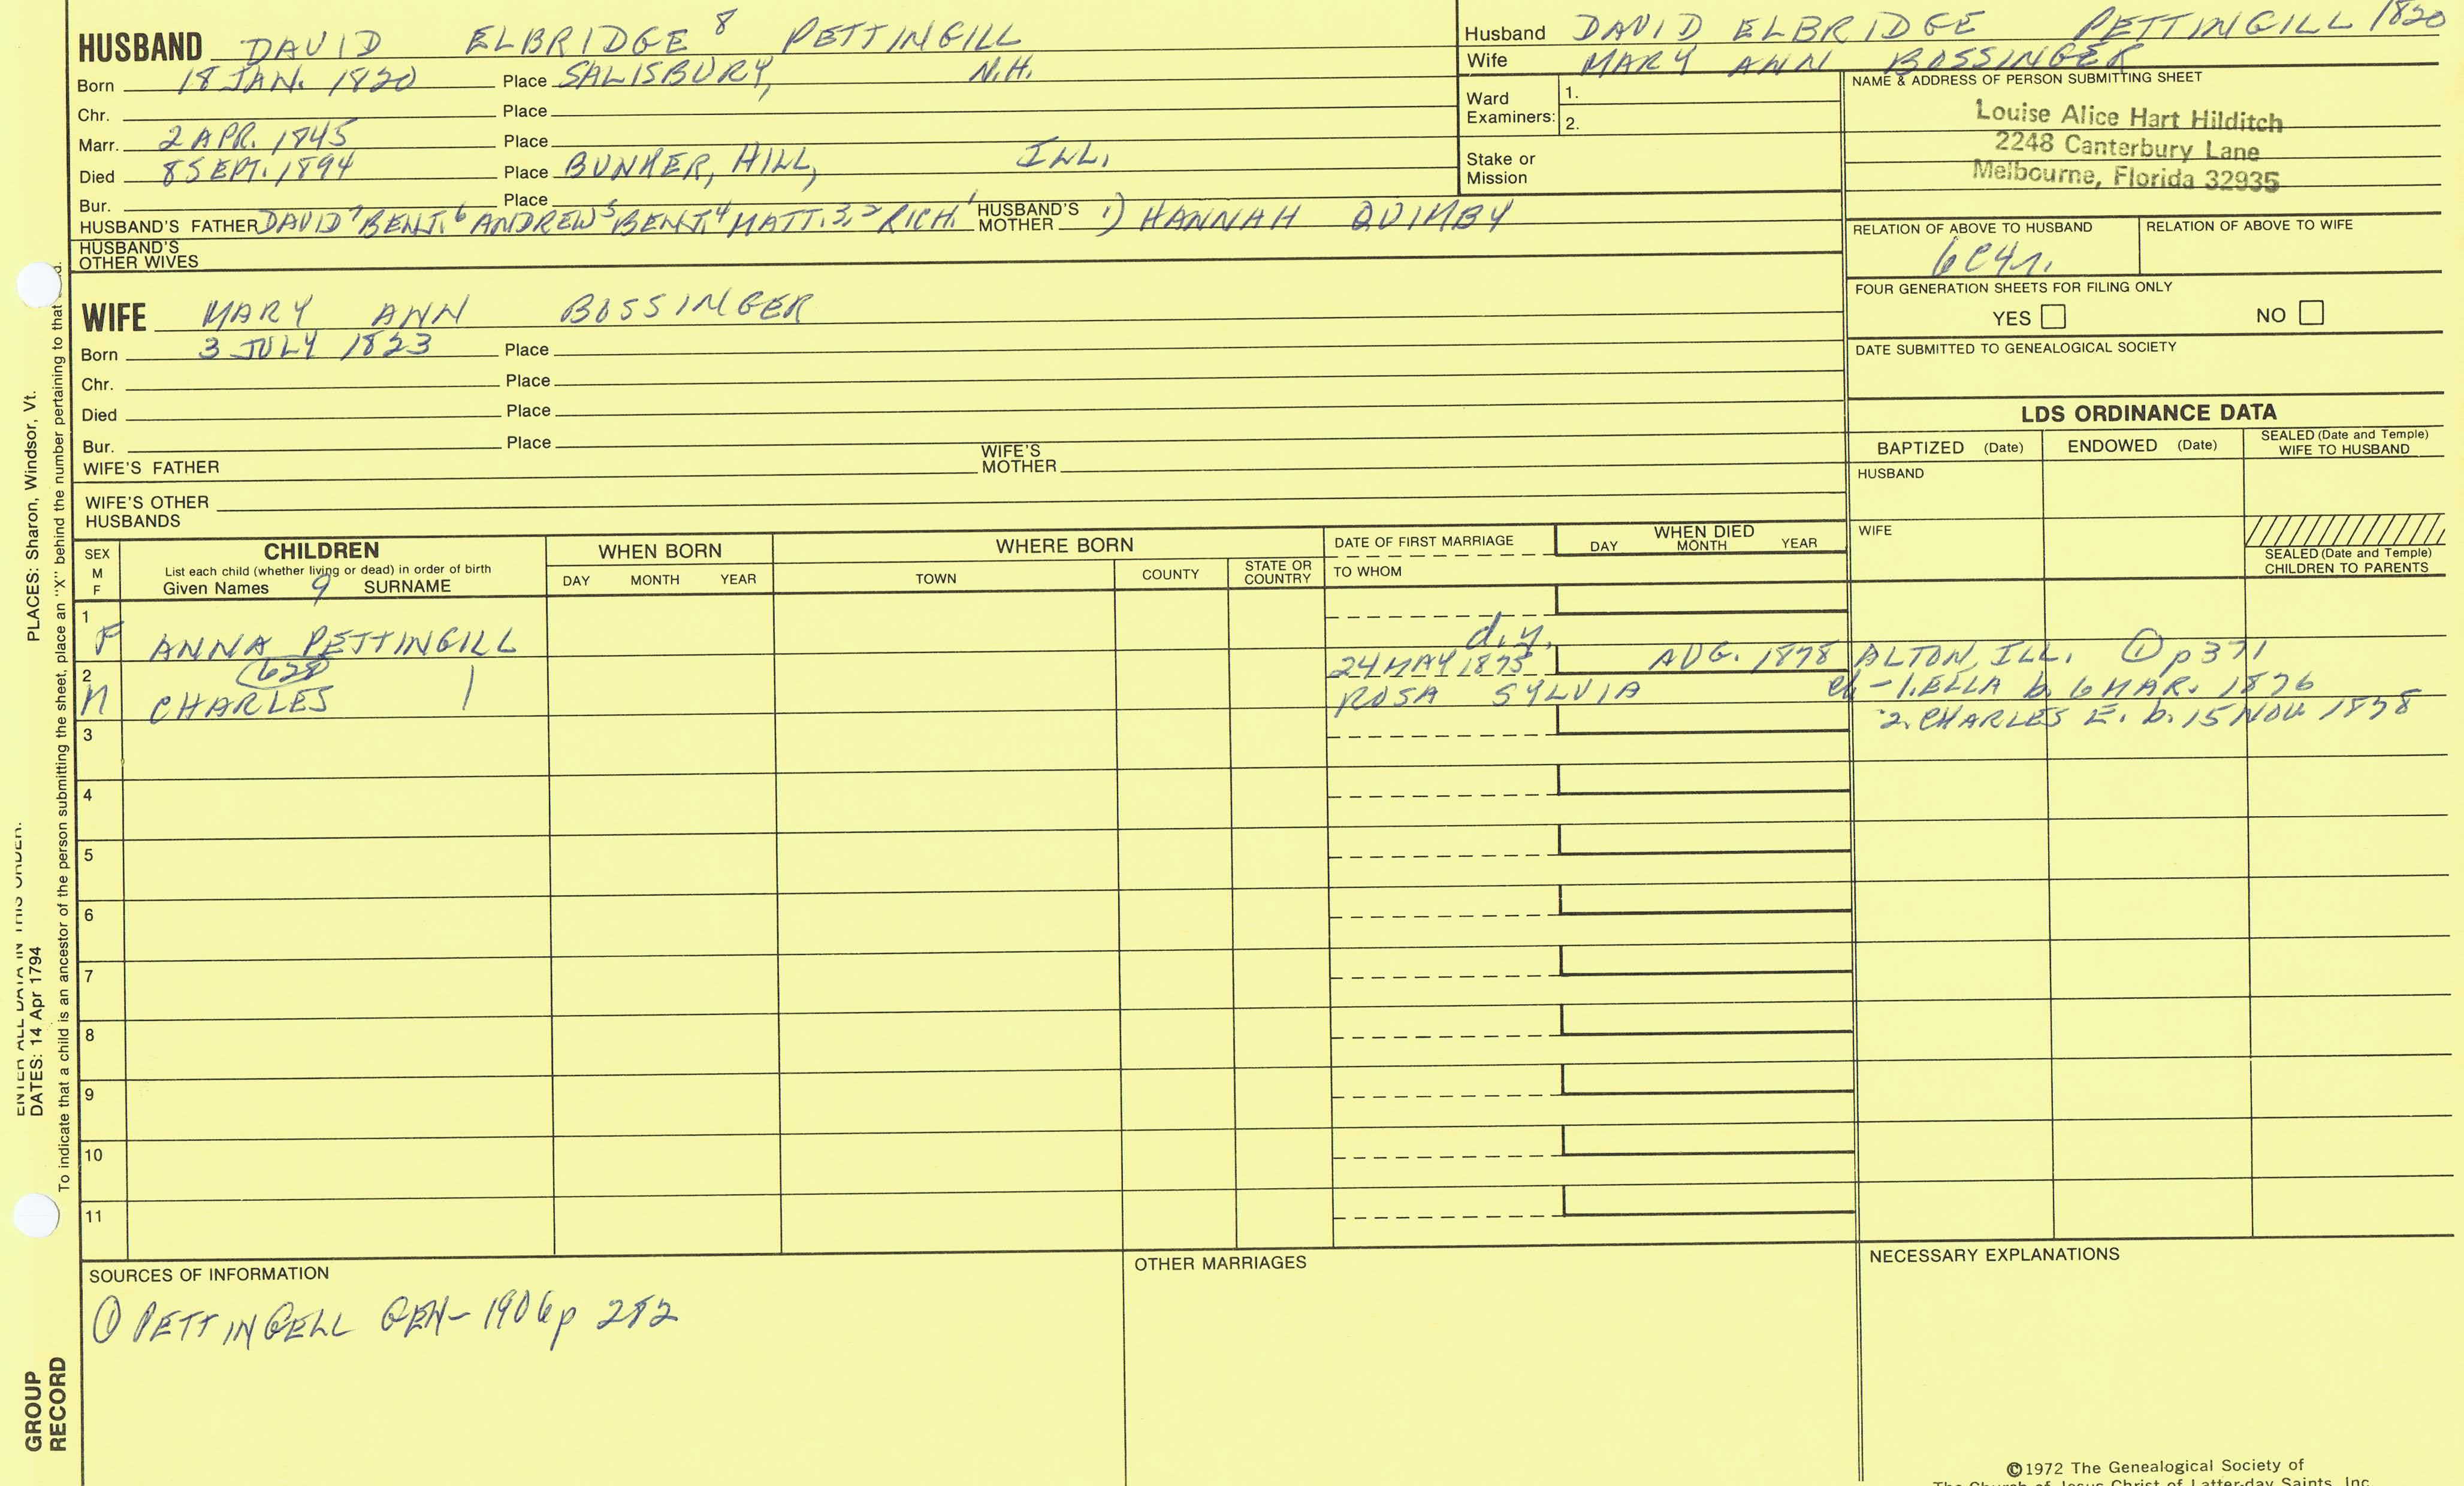 HUSBAND DAVID ELBRIDGE 8 PETTINGILL
Born 18 JAN. 1820 Place SALISBURY, N.H.
Chr. Place
Marr. 2 APR. 1845 Place
Died 8 SEPT. 1894 Place BUNKER, HILL, ILL.
Bur. Place
HUSBAND'S FATHER DAVID 7 BENJ. 6 ANDREW 5 BENJ. 4 MATT. 3, 2 RICH. 1 HUSBAND'S MOTHER 1) HANNAH QUIMBY
HUSBAND'S OTHER WIVES
Husband DAVID ELBRIDGE PETTINGILL 1820
Wife MARY ANN BOSSINGER
Ward Examiners: 1.
2.
Stake or Mission
NAME & ADDRESS OF PERSON SUBMITTING SHEET
Louise Alice Hart Hilditch
2248 Canterbury Lane
Melbourne, Florida 32935
RELATION OF ABOVE TO HUSBAND RELATION OF ABOVE TO WIFE
6C4r.
FOUR GENERATION SHEETS FOR FILING ONLY
YES NO
DATE SUBMITTED TO GENEALOGICAL SOCIETY
WIFE MARY ANN BOSSINGER
Born 3 JULY 1823 Place
Chr. Place
Died Place
Bur. Place
WIFE'S FATHER WIFE'S MOTHER
WIFE'S OTHER HUSBANDS
LDS ORDINANCE DATA
BAPTIZED (Date) ENDOWED (Date) SEALED (Date and Temple) WIFE TO HUSBAND
HUSBAND
WIFE
SEALED (Date and Temple) CHILDREN TO PARENTS
SEX M F
CHILDREN
List each child (whether living or dead) in order of birth
Given Names 9 SURNAME
WHEN BORN
DAY MONTH YEAR
WHERE BORN
TOWN COUNTY STATE OR COUNTRY
DATE OF FIRST MARRIAGE
TO WHOM
WHEN DIED
DAY MONTH YEAR
1
F ANNA PETTINGILL d.y.
2 628 24 MAY 1875 AUG. 1878 ALTON, ILL. ① p 371
M CHARLES ROSA SYLVIA ch - 1. ELLA b. 6 MAR. 1876
2. CHARLES E. b. 15 NOV 1878
3
4
5
6
7
8
9
10
11
SOURCES OF INFORMATION
① PETTINGELL GEN- 1906 p 282
OTHER MARRIAGES
NECESSARY EXPLANATIONS
©1972 The Genealogical Society of
The Church of Jesus Christ of Latter-day Saints, Inc.
ENTER ALL DATA IN THIS ORDER.
DATES: 14 Apr 1794
PLACES: Sharon, Windsor, Vt.
To indicate that a child is an ancestor of the person submitting the sheet, place an "X" behind the number pertaining to that
GROUP
RECORD